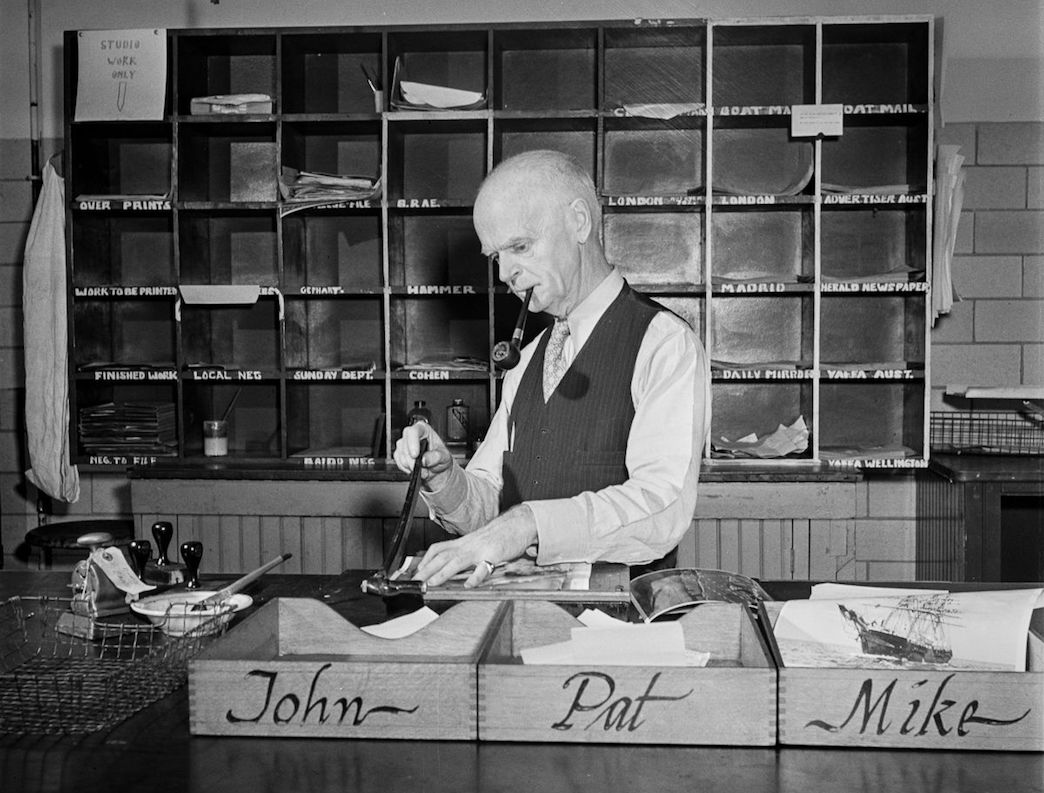 STUDIO
WORK
ONLY
BOAT MAIL
OVER PRINTS
B.RAE.
LONDON
LONDON
ADVERTISER AUST
WORK TO BE PRINTED
GEPHART.
HAMMER
MADRID
HERALD NEWSPAPER
FINISHED WORK
LOCAL NEG
SUNDAY DEPT.
COHEN
DAILY MIRROR
YAFFA AUST.
NEG. TO FILE
BAIRD NEG
YAFFA WELLINGTON
John
Pat
Mike